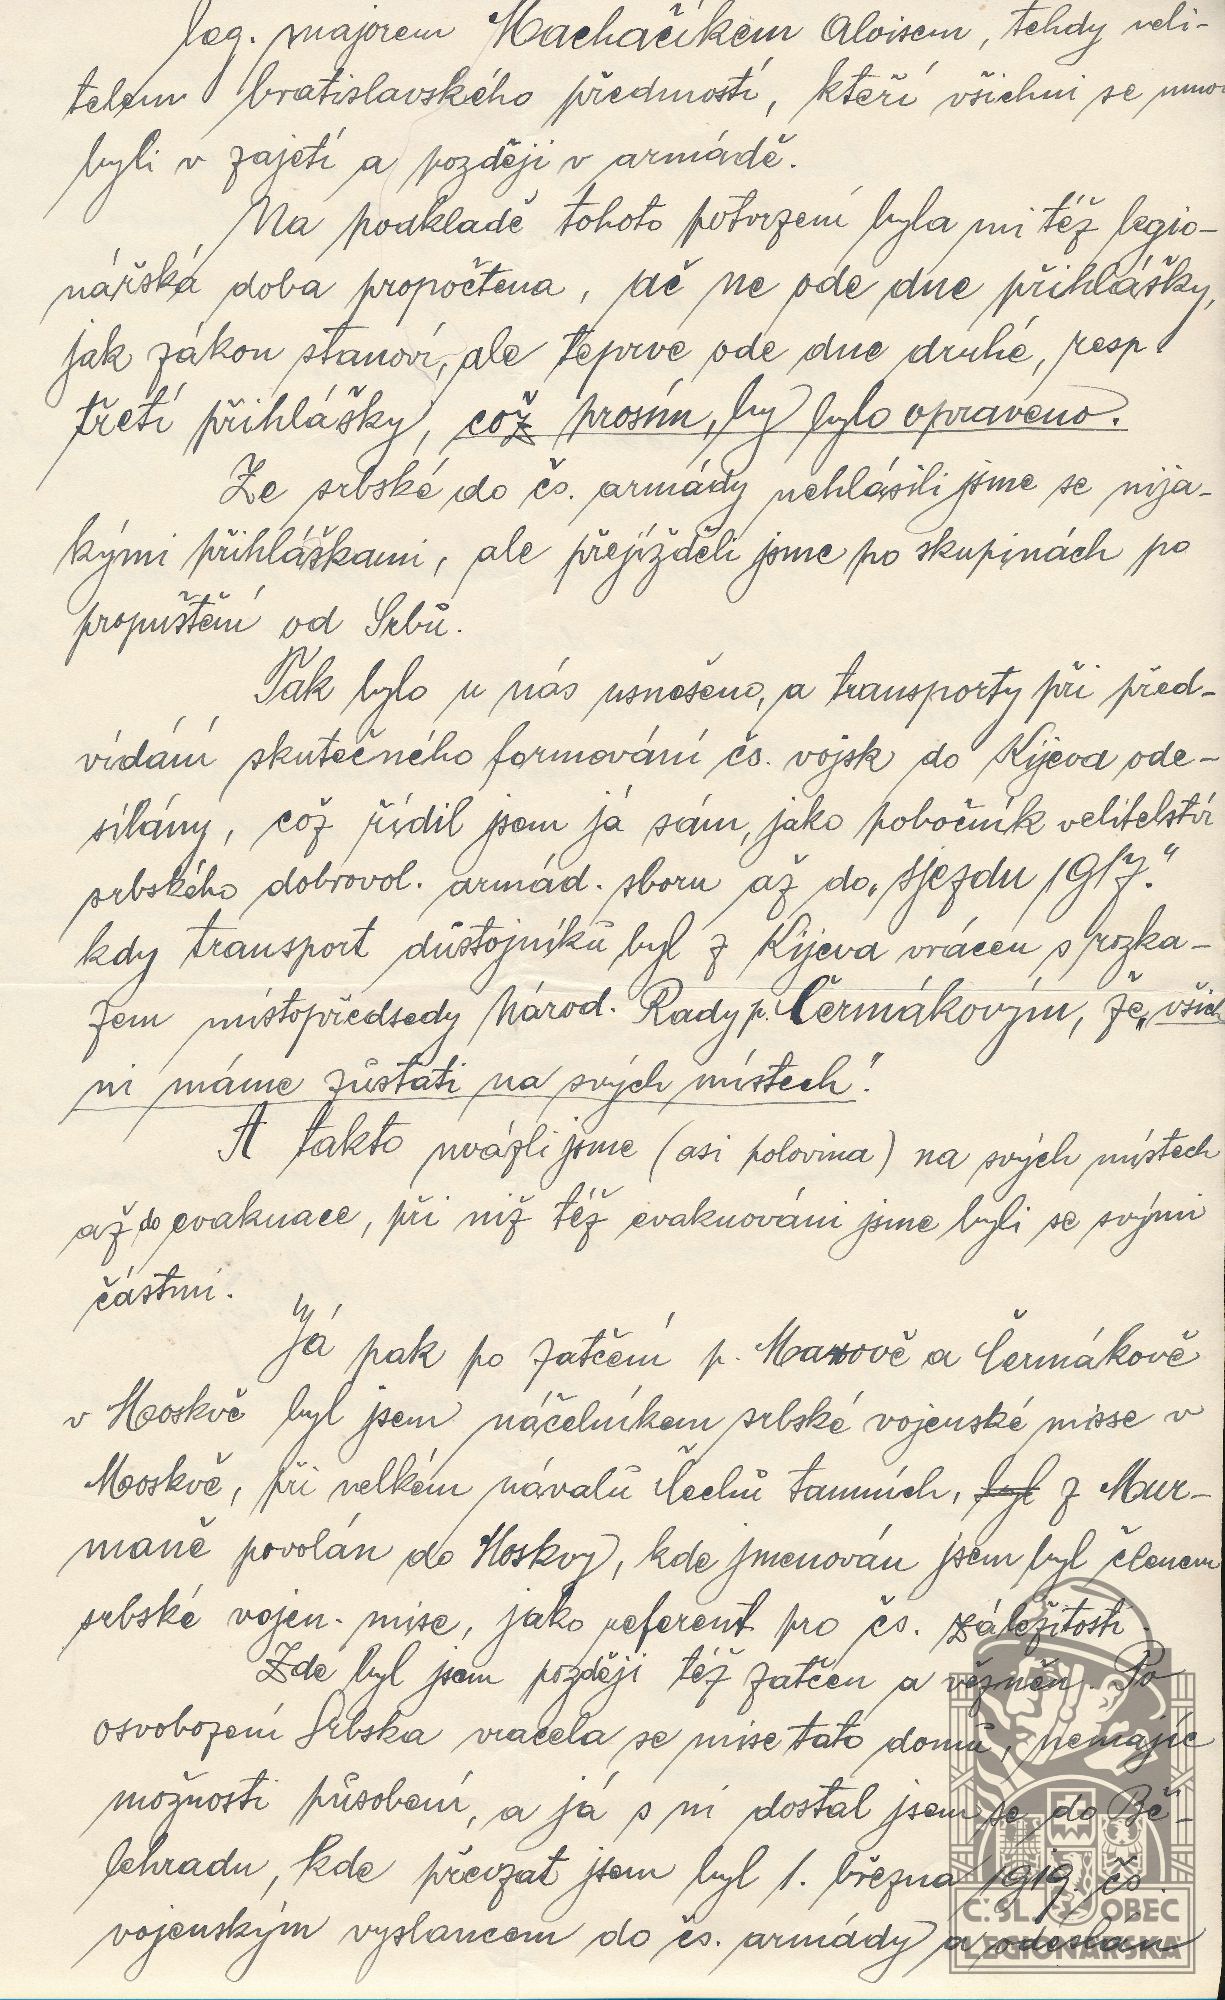 leg. majorem Machačíkem Aloisem, tehdy veli-
telem bratislavského předmostí, kteří všichni se mnou
byli v zajetí a později v armádě.
Na podkladě tohoto potvrzení byla mi též legio-
nářská doba propočtena, ač ne ode dne přihlášky,
jak zákon stanoví, ale teprve ode dne druhé, resp.
třetí přihlášky, což prosím, by bylo opraveno.
Ze srbské do čs. armády nehlásili jsme se nija-
kými přihláškami, ale přejížděli jsme po skupinách po
propuštění od Srbů.
Tak bylo u nás usneseno, a transporty při před-
vídání skutečného formování čs. vojsk do Kijeva ode-
sílány, což řídil jsem já sám, jako pobočník velitelství
srbského dobrovol. armád. sboru až do „sjezdu 1917."
kdy transport důstojníků byl z Kijeva vrácen s rozka-
zem místopředsedy Národ. Rady p. Čermákovým, že „všich
ni máme zůstati na svých místech".
A takto uvázli jsme (asi polovina) na svých místech
až do evakuace, při níž též evakuováni jsme byli se svými
částmi.
Já pak po zatčení p. Maxově a Čermákově
v Moskvě byl jsem náčelníkem srbské vojenské misse v
Moskvě, při velkém návalů Čechů tamních, byl z Mur-
maně povolán do Moskvy, kde jmenován jsem byl členem
srbské vojen. mise, jako referent pro čs. záležitosti.
Zde byl jsem později též zatčen a vězněn. Po
osvobození Srbska vracela se mise tato domů, nemajíc
možnosti působení, a já s ní dostal jsem se do Bě-
lehradu, kde převzat jsem byl 1. března 1919 čs.
vojenským vyslancem do čs. armády a odeslán
Č. SL. OBEC
LEGIONÁŘSKÁ